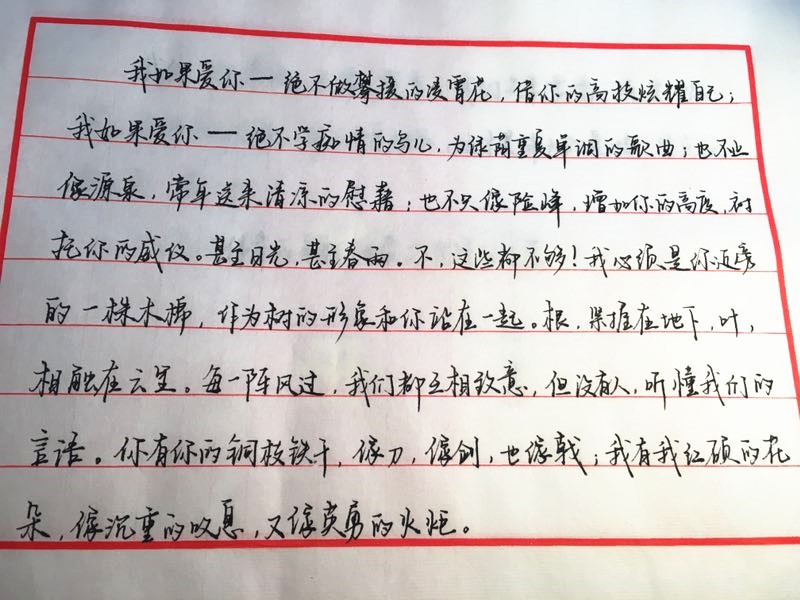 我如果爱你一绝不做攀援的凌霄花，借你的高枝炫耀自己；
我如果爱你一绝不学痴情的鸟儿，为绿荫重复单调的歌曲；也不止
像源泉，常年送来清凉的慰藉；也不只像险峰，增加你的高度，衬
托你的威仪。甚至日光，甚至春雨。不，这些都不够！我必须是你近旁
的一株木棉，作为树的形象和你站在一起。根，紧握在地下，叶，
相触在云里。每一阵风过，我们都互相致意，但没有人，听懂我们的
言语。你有你的铜枝铁干，像刀，像剑，也像戟；我有我红硕的花
朵，像沉重的叹息，又像英勇的火炬。